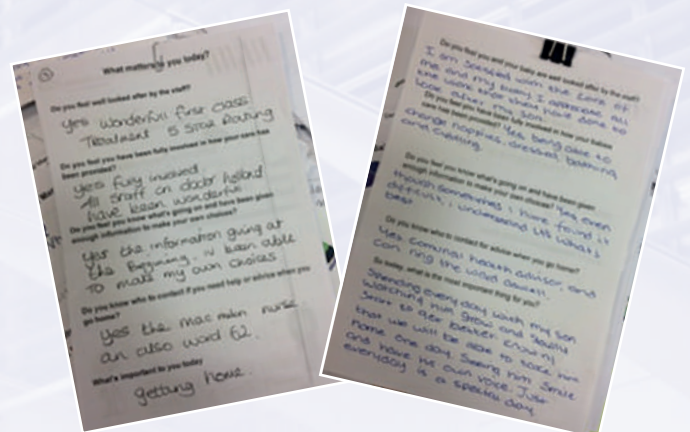 What matters to you today?
Do you feel well looked after by the staff?
yes wonderfull first class
Treatment 5 Star Rating
Do you feel you have been fully involved in how your care has
been provided?
yes fully involved.
All staff on doctor
have been wonderful
Do you feel you know what's going on and have been given
enough information to make your own choices?
Yer the information giving at
the Begining. iv been able
To make my own choices
Do you know who to contact if you need help or advice when you
go home?
yes the mac millen nurse.
an also word 62.
What's important to you today
getting home.
Do you feel you and your baby are well looked after by the staff?
I am satisfied with the care of
me and my baby I appreciate all
the work they have done to
look after my son.
Do you feel you have been fully involved in how your babies
care has been provided? Yes being able to
change nappies, dressed, bathing
and cuddling.
Do you feel you know what's going on and have been given
enough information to make your own choices? Yes even
though sometimes I have found it
difficult, I understand it's what's
best
Do you know who to contact for advice when you go home?
Yes health advisor, and
can ring the ward
So today, what is the most important thing for you?
Spending every day with my son
watching him grow and
start to get better. knowing
that we will be able to take him
home one day. Seeing him smile
and have his own voice. Just
everyday is a special day.